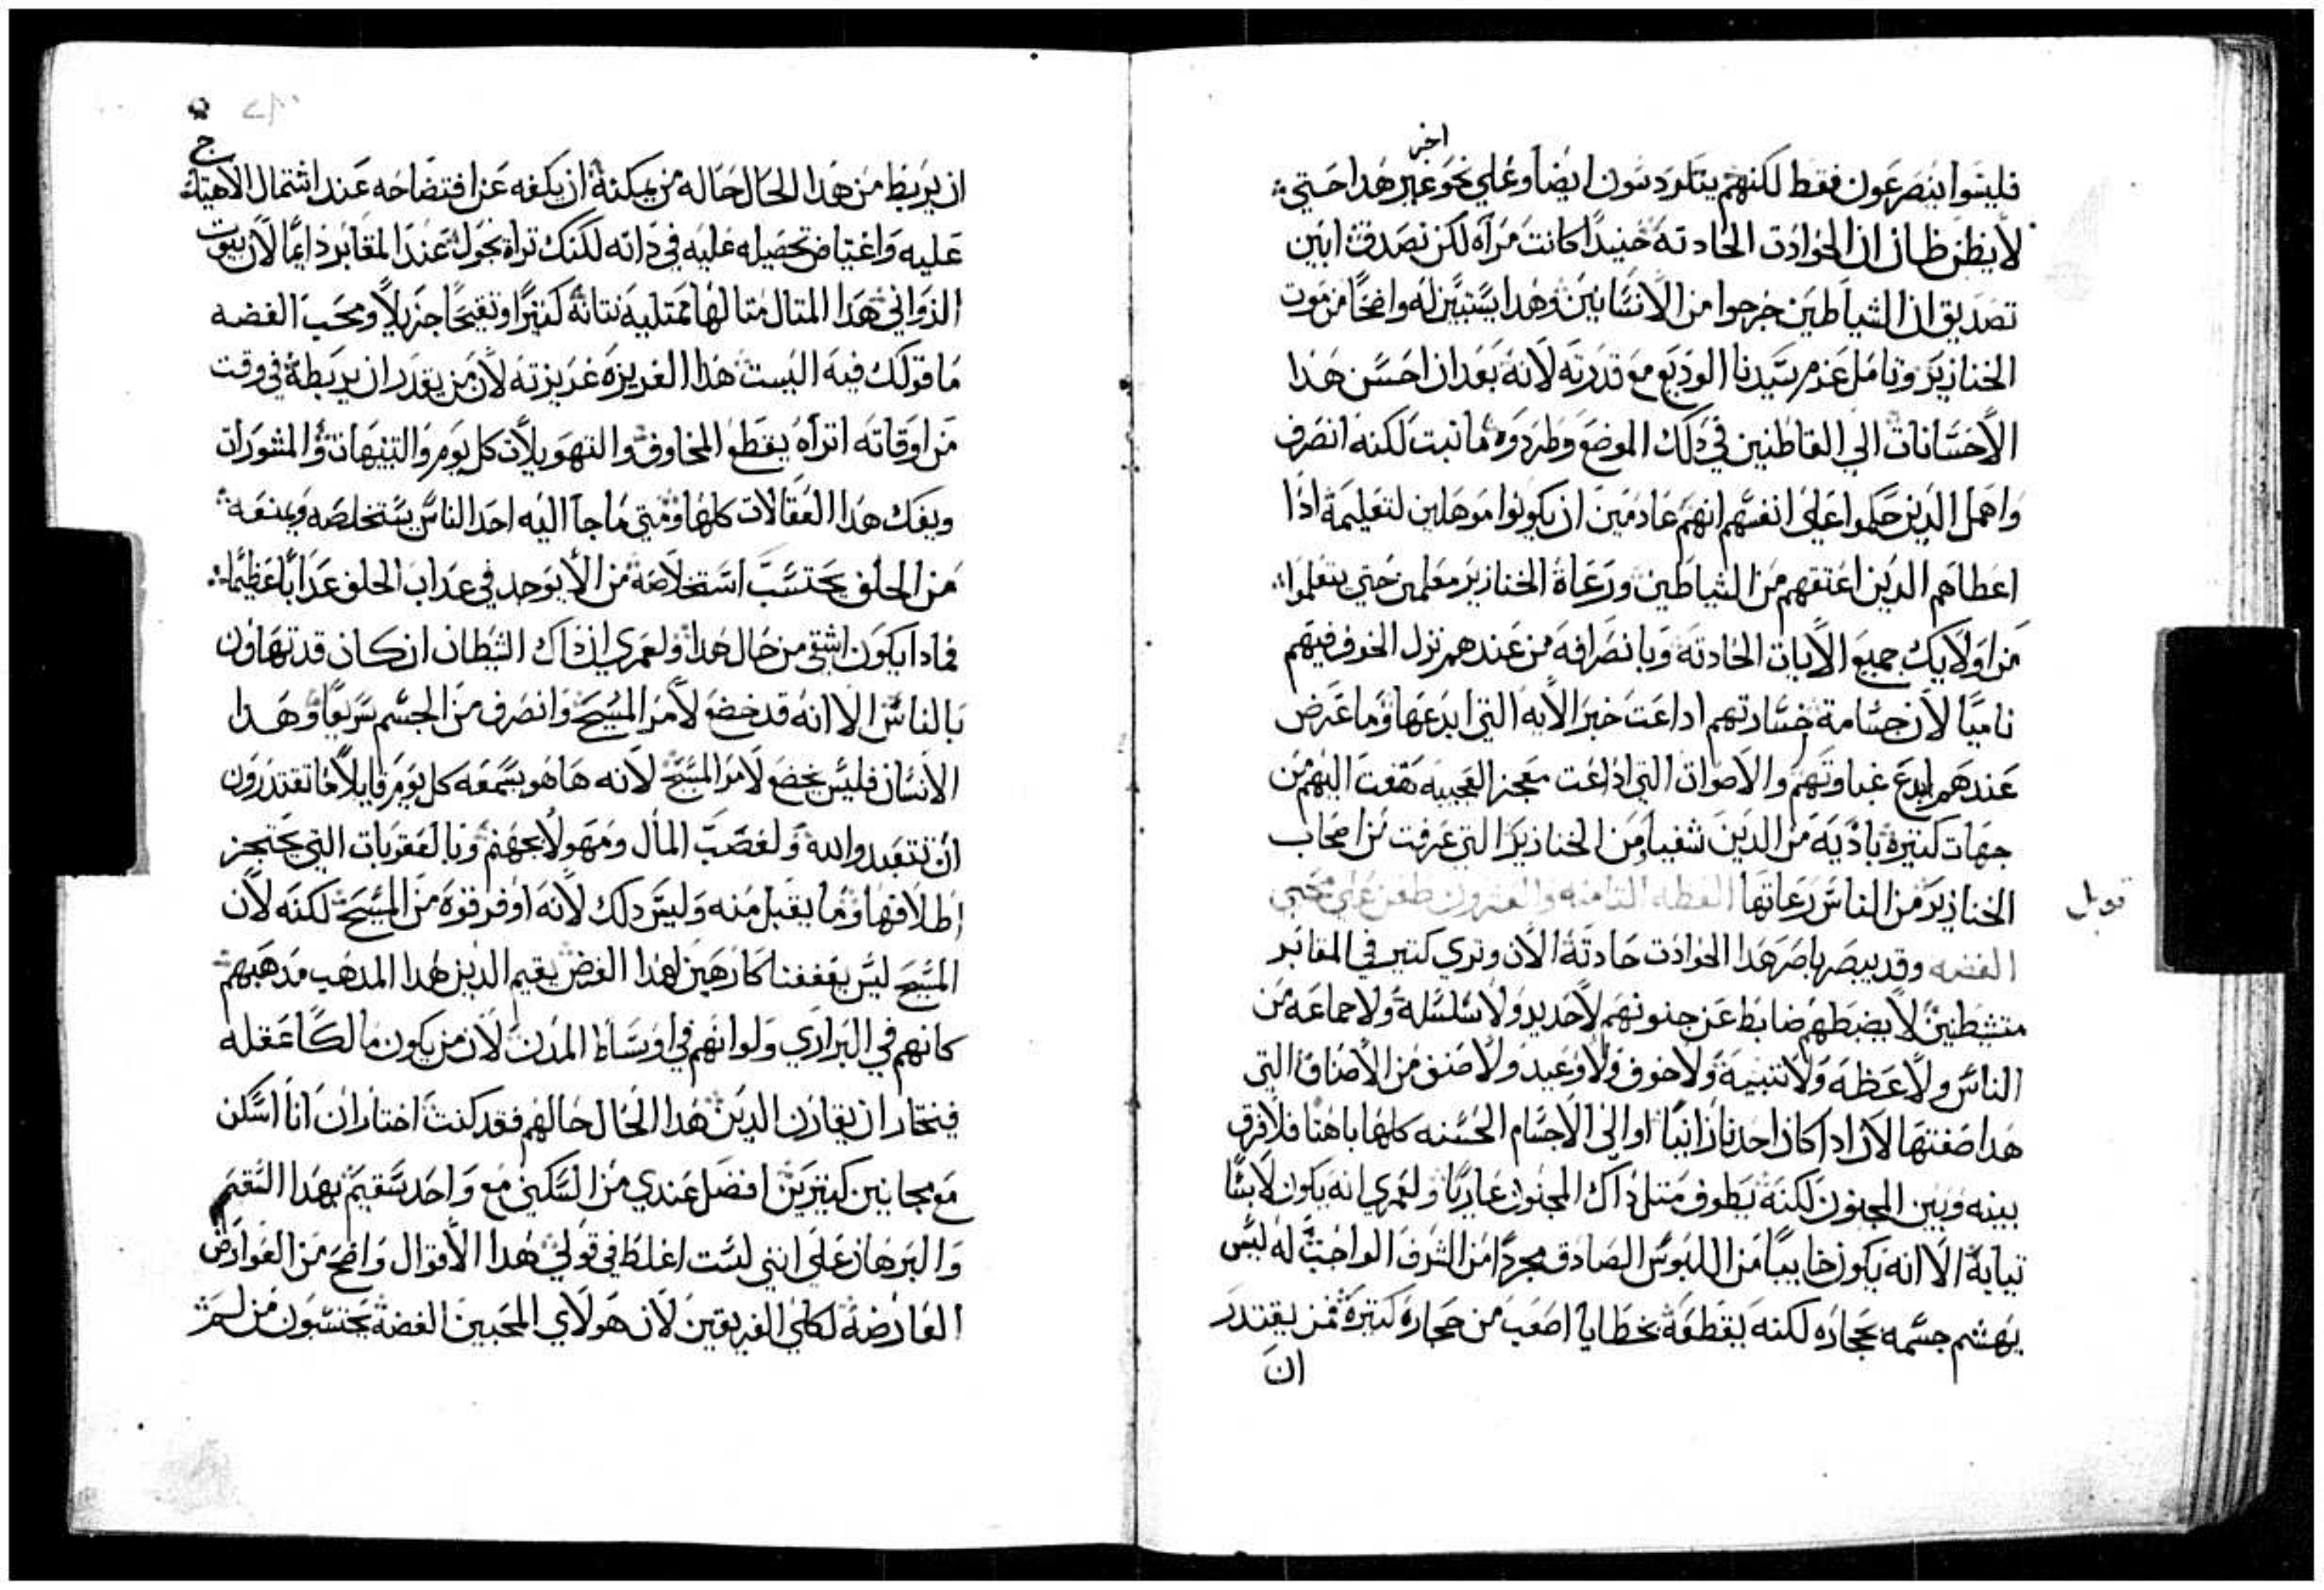 اخر
فليسوا ينصرعون فقط لكنهم يتلردسون ايضاً وعلي نحو غير هدا حتي
لا يظن ظان ان الحوادت الحادته حنيداً كانت مرآه لكن تصدق ابين
تصديق ان الشياطين خرجوا من الانسانين وهدا يستبين له واضحاً من موت
الخنازير وتامل عزم سيدنا الوديع مع قدرته لانه بعد ان احسن هدا
الاحسانات الي القاطنين في دلك الموضع وطردوه ما تبت لكنه انصرف
واهمل الدين حكموا علي انفسهم انهم عادمين ان يكونوا موهلين لتعليمه ادا
اعطاهم الدين اعتقهم من الشياطين ورعاة الخنازير معلمين حتي يتعلموا
من اولايك جميع الايات الحادته وبانصرافه من عندهم نزل الخوف فيهم
ناميا لان جسامة خسارتهم اداعت خبر الايه التي ابدعها وما عرض
عندهم ابدع غباوتهم والاصوات التي اذاعت معجز العجيبه هتفت اليهم من
جهات كتيرة باديه من الدين شفيا ومن الخنازير التي غرقت من اصحاب
الخنازير من الناس رعاتها العظه التامنه والعشرون طعن علي محبي
قوبل
الفضه وقد يبصر باصر هدا الحوادت حادتة الان وتري كتير في المقابر
متشطنين لا يضبطهم ضابط عن جنونهم لا حديد ولا سلسلة ولا جماعه من
الناس ولا عظه ولا تنبيه ولا خوف ولا وعيد ولا صنف من الاصناف التي
هدا صفتها لان ادا كان احدنا زانياً اوالي الاجسام الحسنه كلها باهتا فلا فرق
بينه وبين المجنون لكنه يطوف متل داك المجنون عارياً ولعمري انه يكون لابساً
تيابه الا انه يكون خايباً من اللبوس الصادق مجرداً من الشرف الواجب له ليس
يهشم جسمه بحجاره لكنه يقطعه بخطايا اصعب من حجارة كتيرة فمن يقتدر
ان
ج
ان يربط من هدا الحال حاله من يمكنه ان يكفه عن افتضاحه عند اشتمال الاهتياج
عليه واغتياض تحصيله عليه في داته لكنك تراه يجول عند المقابر دايما لان بيوت
الزواني هدا المتال متالها ممتليه نتانة كتيراً وتقيحاً جزيلاً ومحب الفضه
ما قولك فيه اليست هدا الغريزه غريزته لان من يقدر ان يربطه في وقت
من اوقاته اتراه يقطع المخاوف والتهويلات كل يوم والتنبيهات والمشورات
ويفك هدا العقالات كلها ومتي ما جآ اليه احد الناس يستخلصه ويمنعه
من الحلف يحتسب استخلاصه من الا يوجد في عداب الحلف عداباً عظيماً
فمادا يكون اشقي من حال هدا ولعمري ان داك الشيطان ان كان قد تهاون
بالناس الا انه قد خضع لامر المسيح وانصرف من الجسم سريعاً وهدا
الانسان فليس يخضع لامر المسيح لانه ها هو يسمعه كل يوم قايلاً ما تقتدرون
ان تتعبدوا لله ولغصب المال ومهولا بجهنم وبالعقوبات التي يحتجز
اطلاقها وما يقبل منه وليس دلك لانه اوفر قوة من المسيح لكنه لان
المسيح ليس يعففنا كارهين لهدا الغرض يقيم الدين هدا المدهب مدهبهم
كانهم في البراري ولو انهم في اوساط المدن لان من يكون مالكاً عقله
فيختار ان يقارن الدين هدا الحال حالهم فقد كنت اختار ان انا اسكن
مع مجانين كتيرين افضل عندي من السكني مع واحد سقيم بهدا السقم
والبرهان علي انني لست اغلط في قولي هدا الاقوال واضح من العوارض
العارضة لكلي الفريقين لان هولاي المحبين الفضة يحتسبون من لم